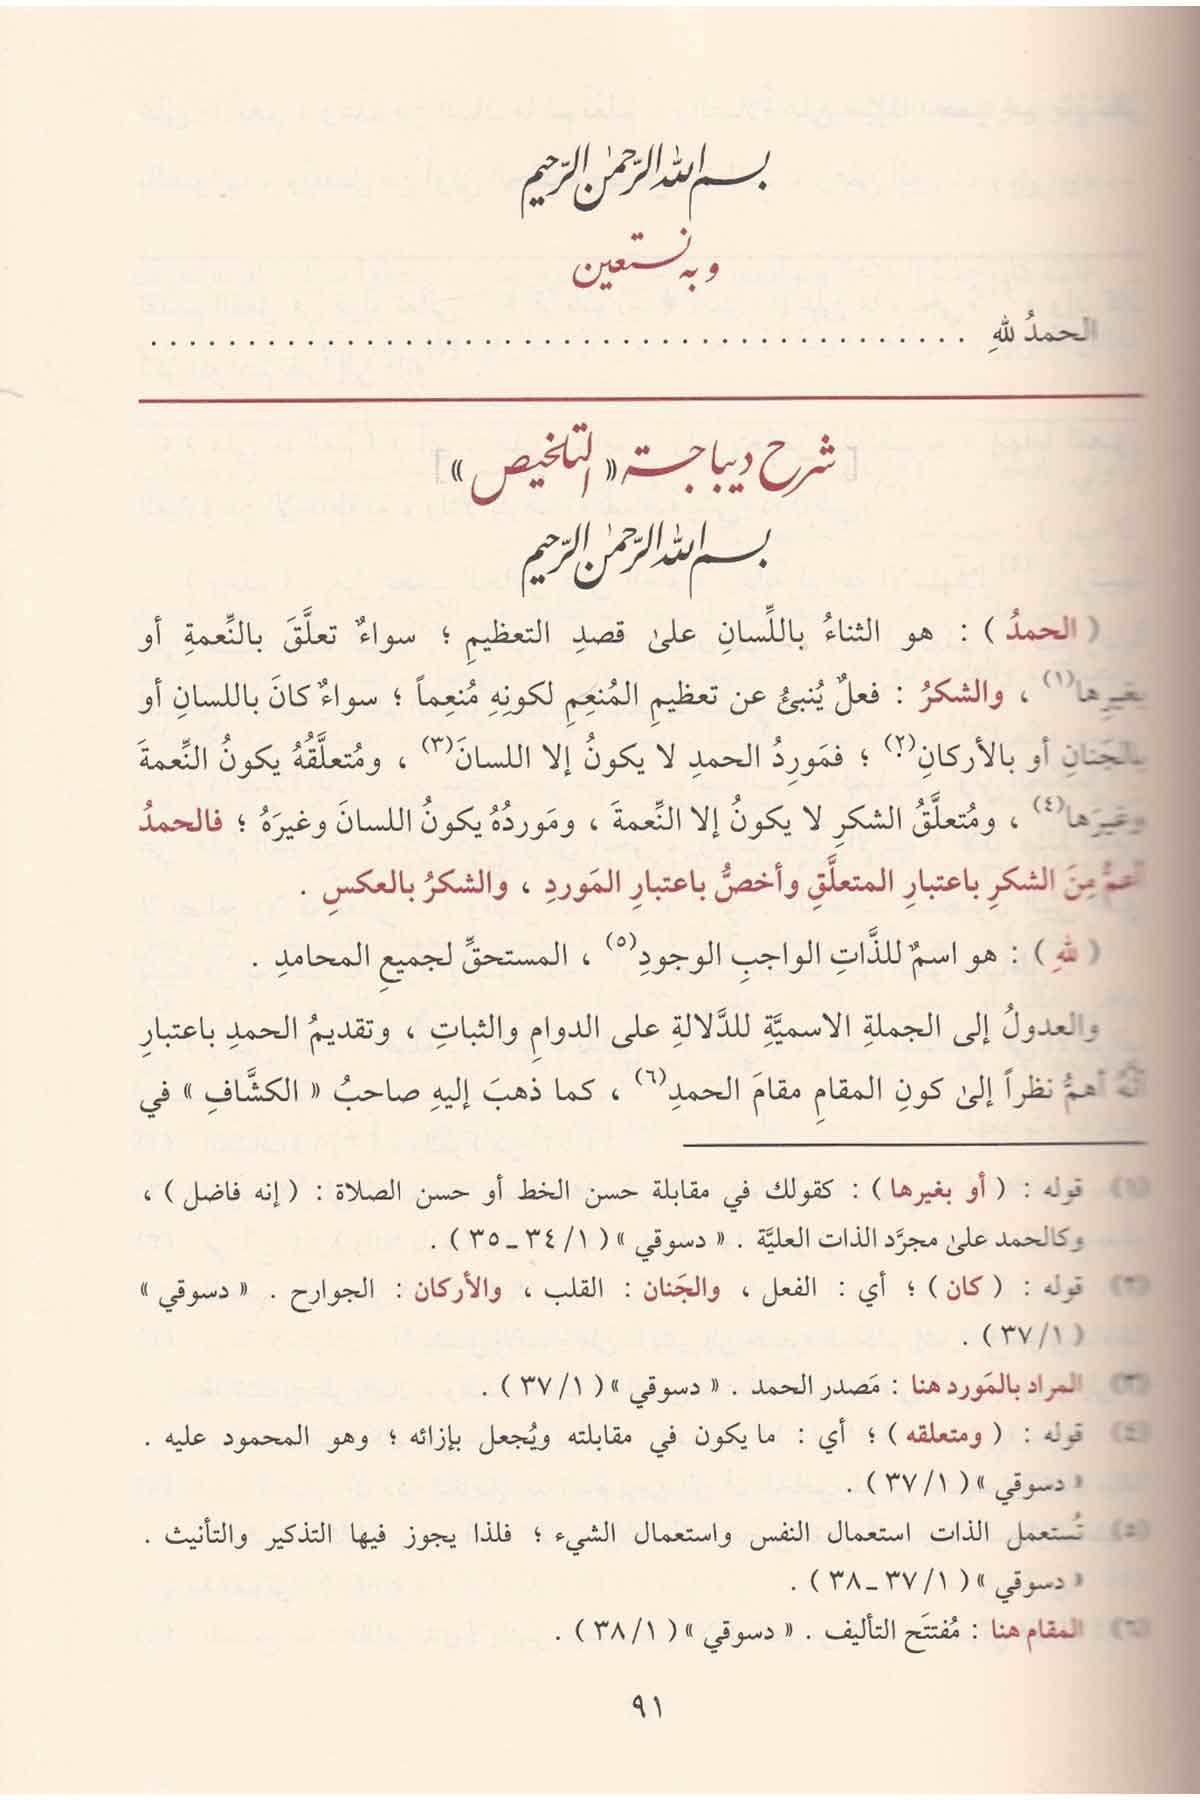 بسم الله الرحمن الرحيم
وبه نستعين
الحمدُ للهِ . . . . . . . . . . . . . . . . . . . . . . . . . . . . . . . . . . . . . . . .
[ شرح ديباجة « التلخيص » ]
بسم الله الرحمن الرحيم
( الحمدُ ) : هو الثناءُ باللِّسانِ علىٰ قصدِ التعظيمِ ؛ سواءٌ تعلَّقَ بالنِّعمةِ أو
بغيرِها(١) ، والشكرُ : فعلٌ يُنبئُ عن تعظيمِ المُنعِمِ لكونِهِ مُنعِماً ؛ سواءٌ كانَ باللسانِ أو
بالجَنانِ أو بالأركانِ(٢) ؛ فمَورِدُ الحمدِ لا يكونُ إلا اللسانَ(٣) ، ومُتعلَّقُهُ يكونُ النِّعمةَ
وغيرَها(٤) ، ومُتعلَّقُ الشكرِ لا يكونُ إلا النِّعمةَ ، ومَوردُهُ يكونُ اللسانَ وغيرَهُ ؛ فالحمدُ
أعمُّ مِنَ الشكرِ باعتبارِ المتعلَّقِ وأخصُّ باعتبارِ المَوردِ ، والشكرُ بالعكسِ .
( للهِ ) : هو اسمٌ للذَّاتِ الواجبِ الوجودِ(٥) ، المستحقِّ لجميعِ المحامدِ .
والعدولُ إلى الجملةِ الاسميَّةِ للدَّلالةِ على الدوامِ والثباتِ ، وتقديمُ الحمدِ باعتبارِ
أنَّهُ أهمُّ نظراً إلىٰ كونِ المقامِ مقامَ الحمدِ(٦) ، كما ذهبَ إليهِ صاحبُ « الكشَّافِ » في
(١) قوله : ( أو بغيرها ) : كقولك في مقابلة حسن الخط أو حسن الصلاة : ( إنه فاضل ) ،
وكالحمد علىٰ مجرَّد الذات العليَّة . « دسوقي » ( ١/ ٣٤ ـ ٣٥ ) .
(٢) قوله : ( كان ) ؛ أي : الفعل ، والجَنان : القلب ، والأركان : الجوارح . « دسوقي »
( ١/ ٣٧ ) .
(٣) المراد بالمَورد هنا : مَصدر الحمد . « دسوقي » ( ١/ ٣٧ ) .
(٤) قوله : ( ومتعلقه ) ؛ أي : ما يكون في مقابلته ويُجعل بإزائه ؛ وهو المحمود عليه .
« دسوقي » ( ١/ ٣٧ ) .
(٥) تُستعمل الذات استعمال النفس واستعمال الشيء ؛ فلذا يجوز فيها التذكير والتأنيث .
« دسوقي » ( ١/ ٣٧ ـ ٣٨ ) .
(٦) المقام هنا : مُفتتَح التأليف . « دسوقي » ( ١/ ٣٨ ) .
٩١